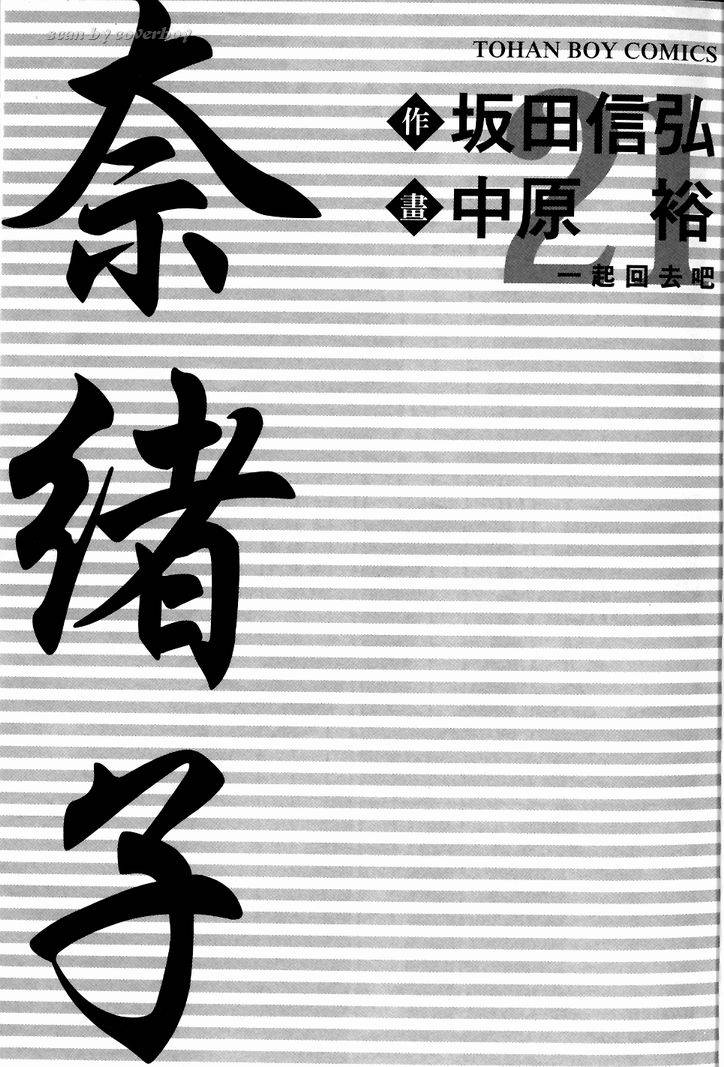 scan by coverboy
TOHAN BOY COMICS
21
作 坂田信弘
畫 中原 裕
一起回去吧
奈緒子